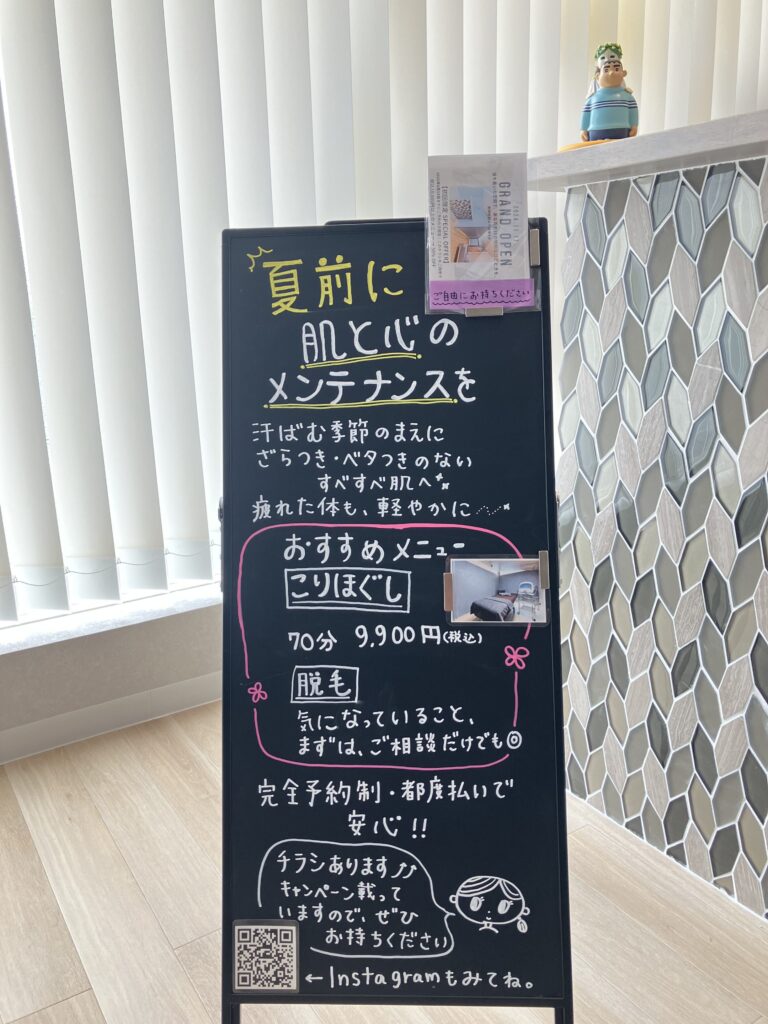 GRAND OPEN
【初回限定 SPECIAL OFFER】
ご自由にお持ちください
夏前に
肌と心の
メンテナンスを
汗ばむ季節のまえに
ざらつき・ベタつきのない
すべすべ肌へ
疲れた体も、軽やかに
おすすめメニュー
こりほぐし
70分 9,900円(税込)
脱毛
気になっていること、
まずは、ご相談だけでも◎
完全予約制・都度払いで
安心!!
チラシあります♪♪
キャンペーン載って
いますので、ぜひ
お持ちください
←Instagramもみてね。